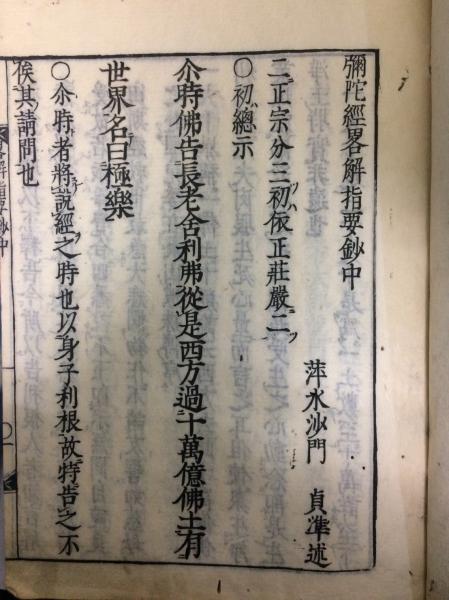 彌陀經畧解指要鈔中
萍水沙門　貞準述
二正宗分三初ハ依正莊嚴二ツ
○初總示
尒時佛告長老舍利弗從是西方過十萬億佛土有
世界名曰極樂
○尒時者將說經之時也以身子利根故特告之不
俟其請問也
畧解指要鈔中